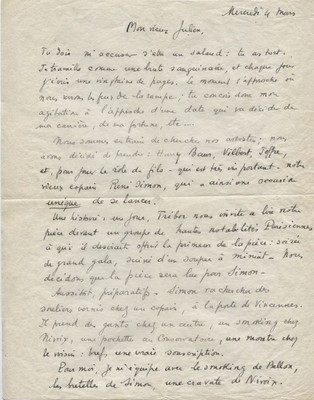 Mercredi 4 mars
Mon vieux Julien,
Tu dois m'accuser d'être un salaud : tu as tort.
Je travaille comme une brute sanguinaire, et chaque jour
j'écris une vingtaine de pages, le moment s'approche où
nous verrons les feux de la rampe ; tu conçois donc mon
agitation à l'approche d'une date qui va décider de
ma carrière, de ma fortune, etc....
Nous sommes en train de chercher nos artistes : nous
avons décidé de prendre : Harry Baur, Vilbert, Joffre,
et, pour jouer le rôle de fils - qui est très important - notre
vieux copain René Simon, qui - ainsi une occasion
unique de se lancer.
Une histoire : un jour, Trébor nous invite à lire notre
pièce devant un groupe de hautes notabilités Parisiennes
à qui il désirait offrir la primeur de la pièce : soirée
de grand gala, suivi d'un souper à minuit - Nous
décidons que la pièce sera lue par Simon -
Aussitôt, préparatifs - Simon va chercher des
souliers vernis chez un copain, à la porte de Vincennes.
Il prend des gants chez un autre, un smoking chez
Nivoix, une pochette au Conservatoire, une montre chez
le voisin : bref, une vraie souscription.
Pour moi, je m'équipe avec le smoking de Bellon,
les bretelles de Simon, une cravate de Nivoix.